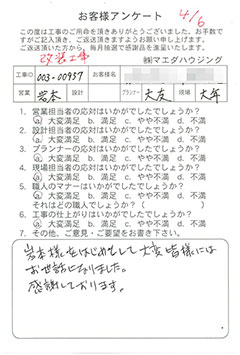 お客様アンケート
4/6
この度は工事のご用命を頂きありがとうございました。お手数で
すがご記入頂き、ご返送頂きますようお願い申し上げます。
ご返送頂いた方から、毎月抽選で感謝品を進呈いたします。
改装工事
㈱マエダハウジング
工事ID 003-00937 お客様名
営業 岩本 設計 プランナー 大友 現場 大年
1. 営業担当者の応対はいかがでしたでしょうか?
a. 大変満足 b. 満足 c. やや不満 d. 不満
2. 設計担当者の応対はいかがでしたでしょうか?
a. 大変満足 b. 満足 c. やや不満 d. 不満
3. プランナーの応対はいかがでしたでしょうか?
a. 大変満足 b. 満足 c. やや不満 d. 不満
4. 現場担当者の応対はいかがでしたでしょうか?
a. 大変満足 b. 満足 c. やや不満 d. 不満
5. 職人のマナーはいかがでしたでしょうか?
a. 大変満足 b. 満足 c. やや不満 d. 不満
それはどの職人でしょうか?( )
6. 工事の仕上がりはいかがでしたでしょうか?
a. 大変満足 b. 満足 c. やや不満 d. 不満
7. その他、ご意見・ご要望をお書き下さい。
岩本様をはじめとして大変皆様には
お世話になりました。
感謝しております。